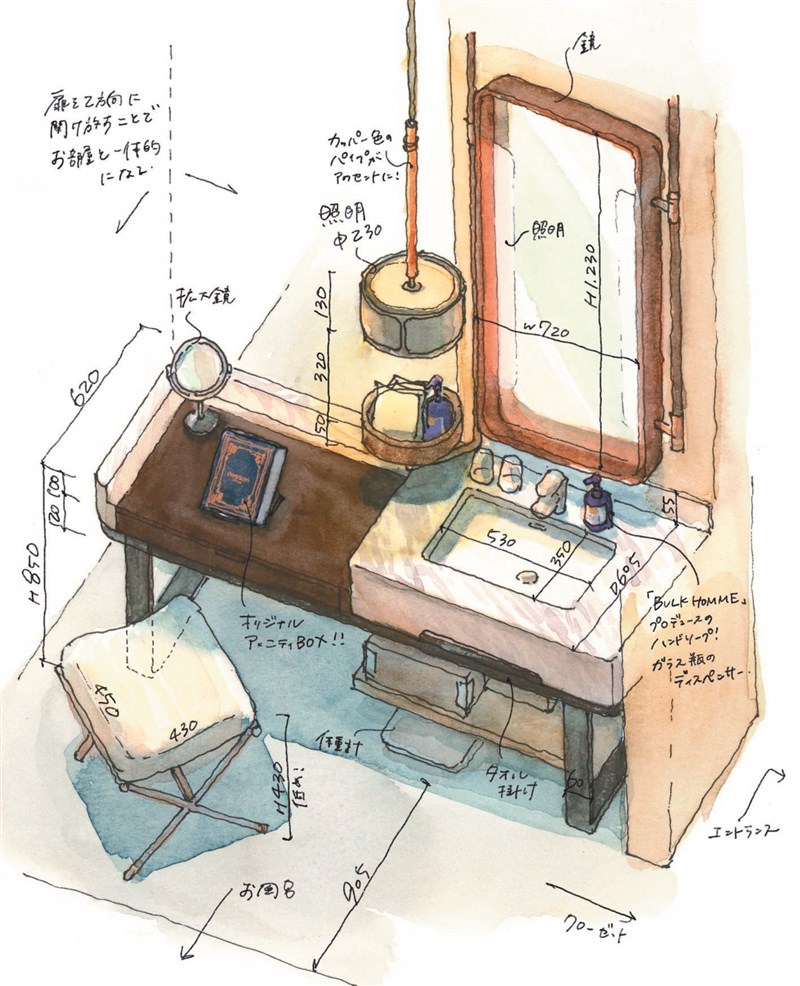 鏡
扉を2方向に
開け放すことで
お部屋と一体的
になる。
カッパー色の
パイプが
アクセントに!
照明
φ230
照明
H1,230
W720
拡大鏡
130
320
50
620
100
120
H850
530
350
D605
55
オリジナル
アメニティBOX!!
「BULK HOMME」
プロデュースの
ハンドソープ!
ガラス瓶の
ディスペンサー
450
430
H430
低め!
体重計
タオル
掛け
60
905
お風呂
クローゼット
エントランス